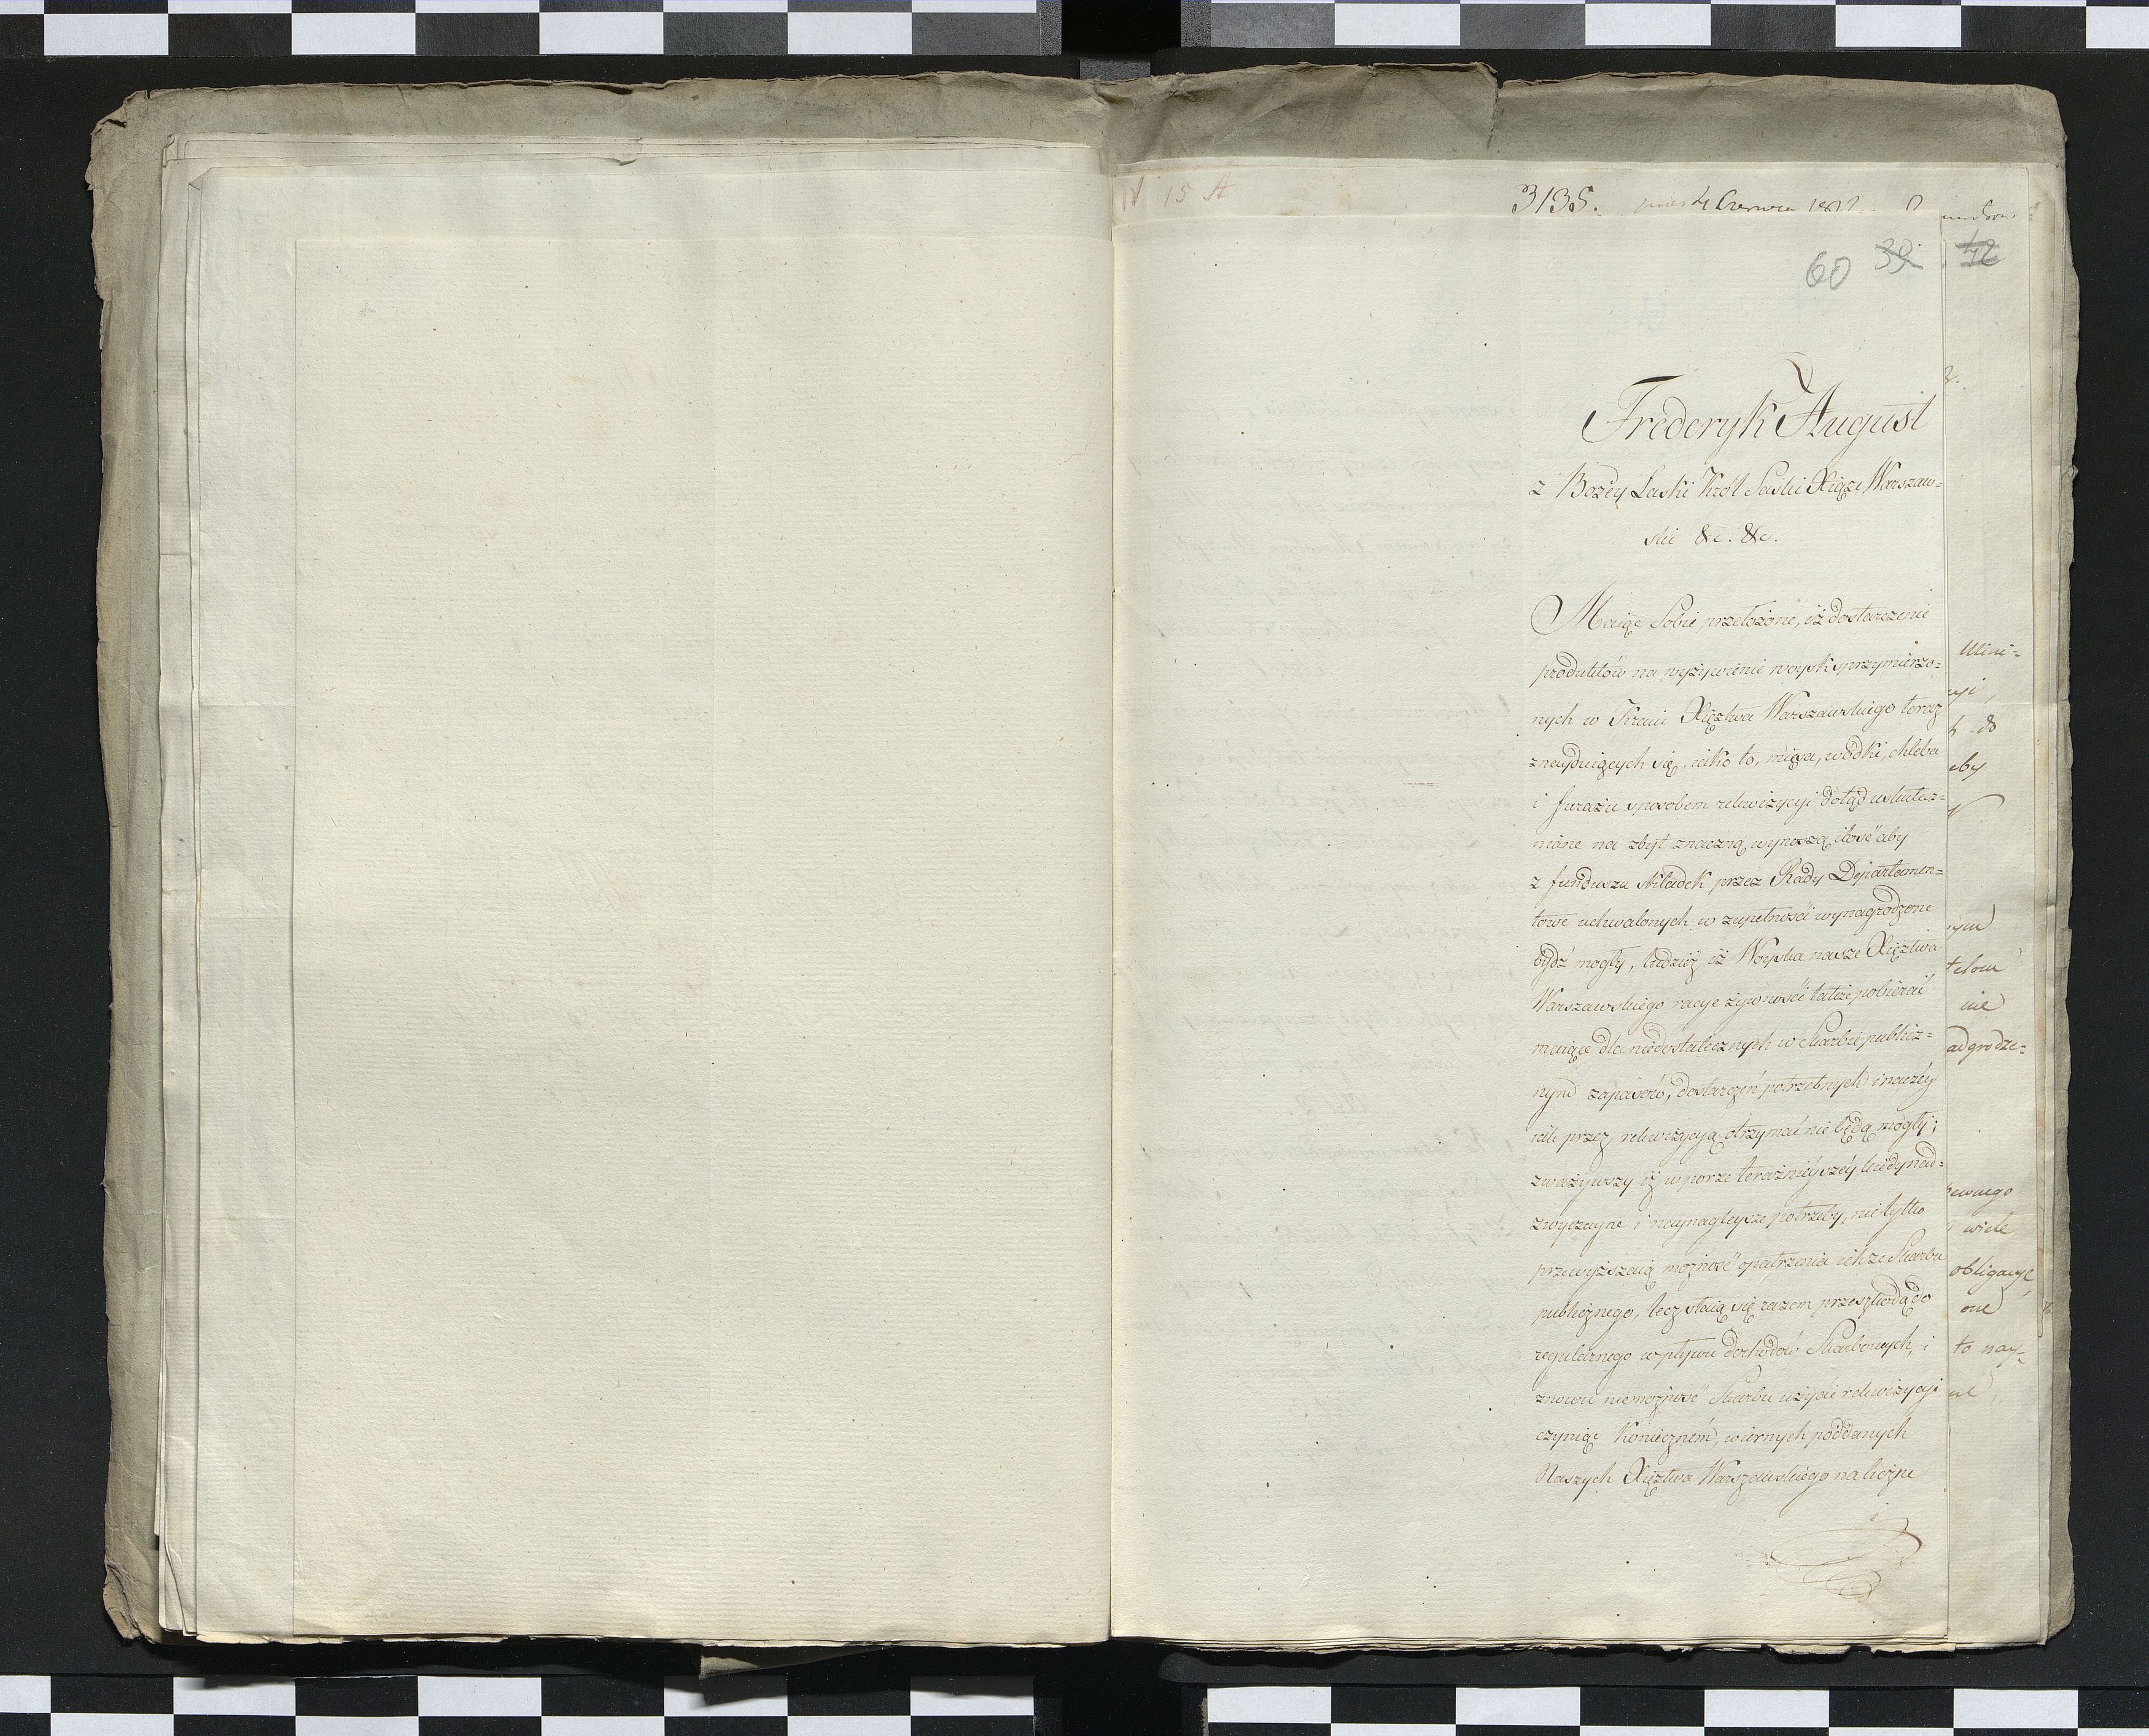 IV 15 A
3135.
60 39 42
Fryderyk August
z Bożey Łaski Król Saski Xiąże Warszaw=
ski &c. &c.
Maiąc Sobie przełożone, iż dostarczenie
produktów na wyżywienie woysk sprzymierzo=
nych w Kraiu Xięztwa Warszawskiego teraz
znayduiących się, iako to, mięsa, wódki, chleba
i furażu sposobem rekwizycyi dotąd uskutecz=
nione na zbyt znaczną wynoszą ilość aby
z funduszu składek przez Rady Departamen=
towe uchwalonych w zupełności wynagrodzone
bydź mogły, tudzież iż Woyska nasze Xięztwa
Warszawskiego racye żywności także pobierać
maiące dla niedostatecznych w Skarbie publicz=
nym zapasów, dostarczeń potrzebnych inaczéy
iak przez rekwizycyą otrzymać nie będą mogły;
zważywszy iż w porze teraźnieyszéy kiedy nad=
zwyczayne i naynagleysze potrzeby, nie tylko
przewyższaią możność opatrzenia ich ze Skarbu
publicznego, lecz staią się razem przeszkodą do
regularnego wpływu dochodów Skarbowych, i
znowu niemożność Skarbu użycie rekwizycyi
czyniąc konieczném, wiernych poddanych
Naszych Xięztwa Warszawskiego na liczne
Mini=
h do
aby
telom
nie
adgrodze=
ewnego
wiele
obligacye
one
to nay=